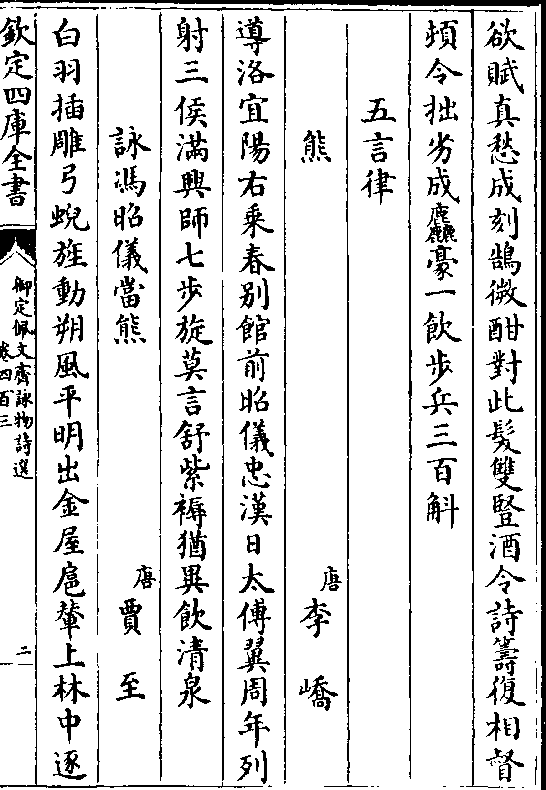 欲賦真愁成刻鵠微酣對此髪雙豎酒令詩籌復相督
頻令拙劣成麤豪一飲步兵三百斛
五言律
熊 唐 李嶠
導洛宜陽右乗春别館前昭儀忠漢日太傅翼周年列
射三侯滿興師七步旋莫言舒紫褥猶異飲清泉
詠馮昭儀當熊 唐 賈至
白羽插雕弓蜺旌動朔風平明出金屋扈輦上林中逐
欽定四庫全書
御定佩文齋詠物詩選
卷四百三
二